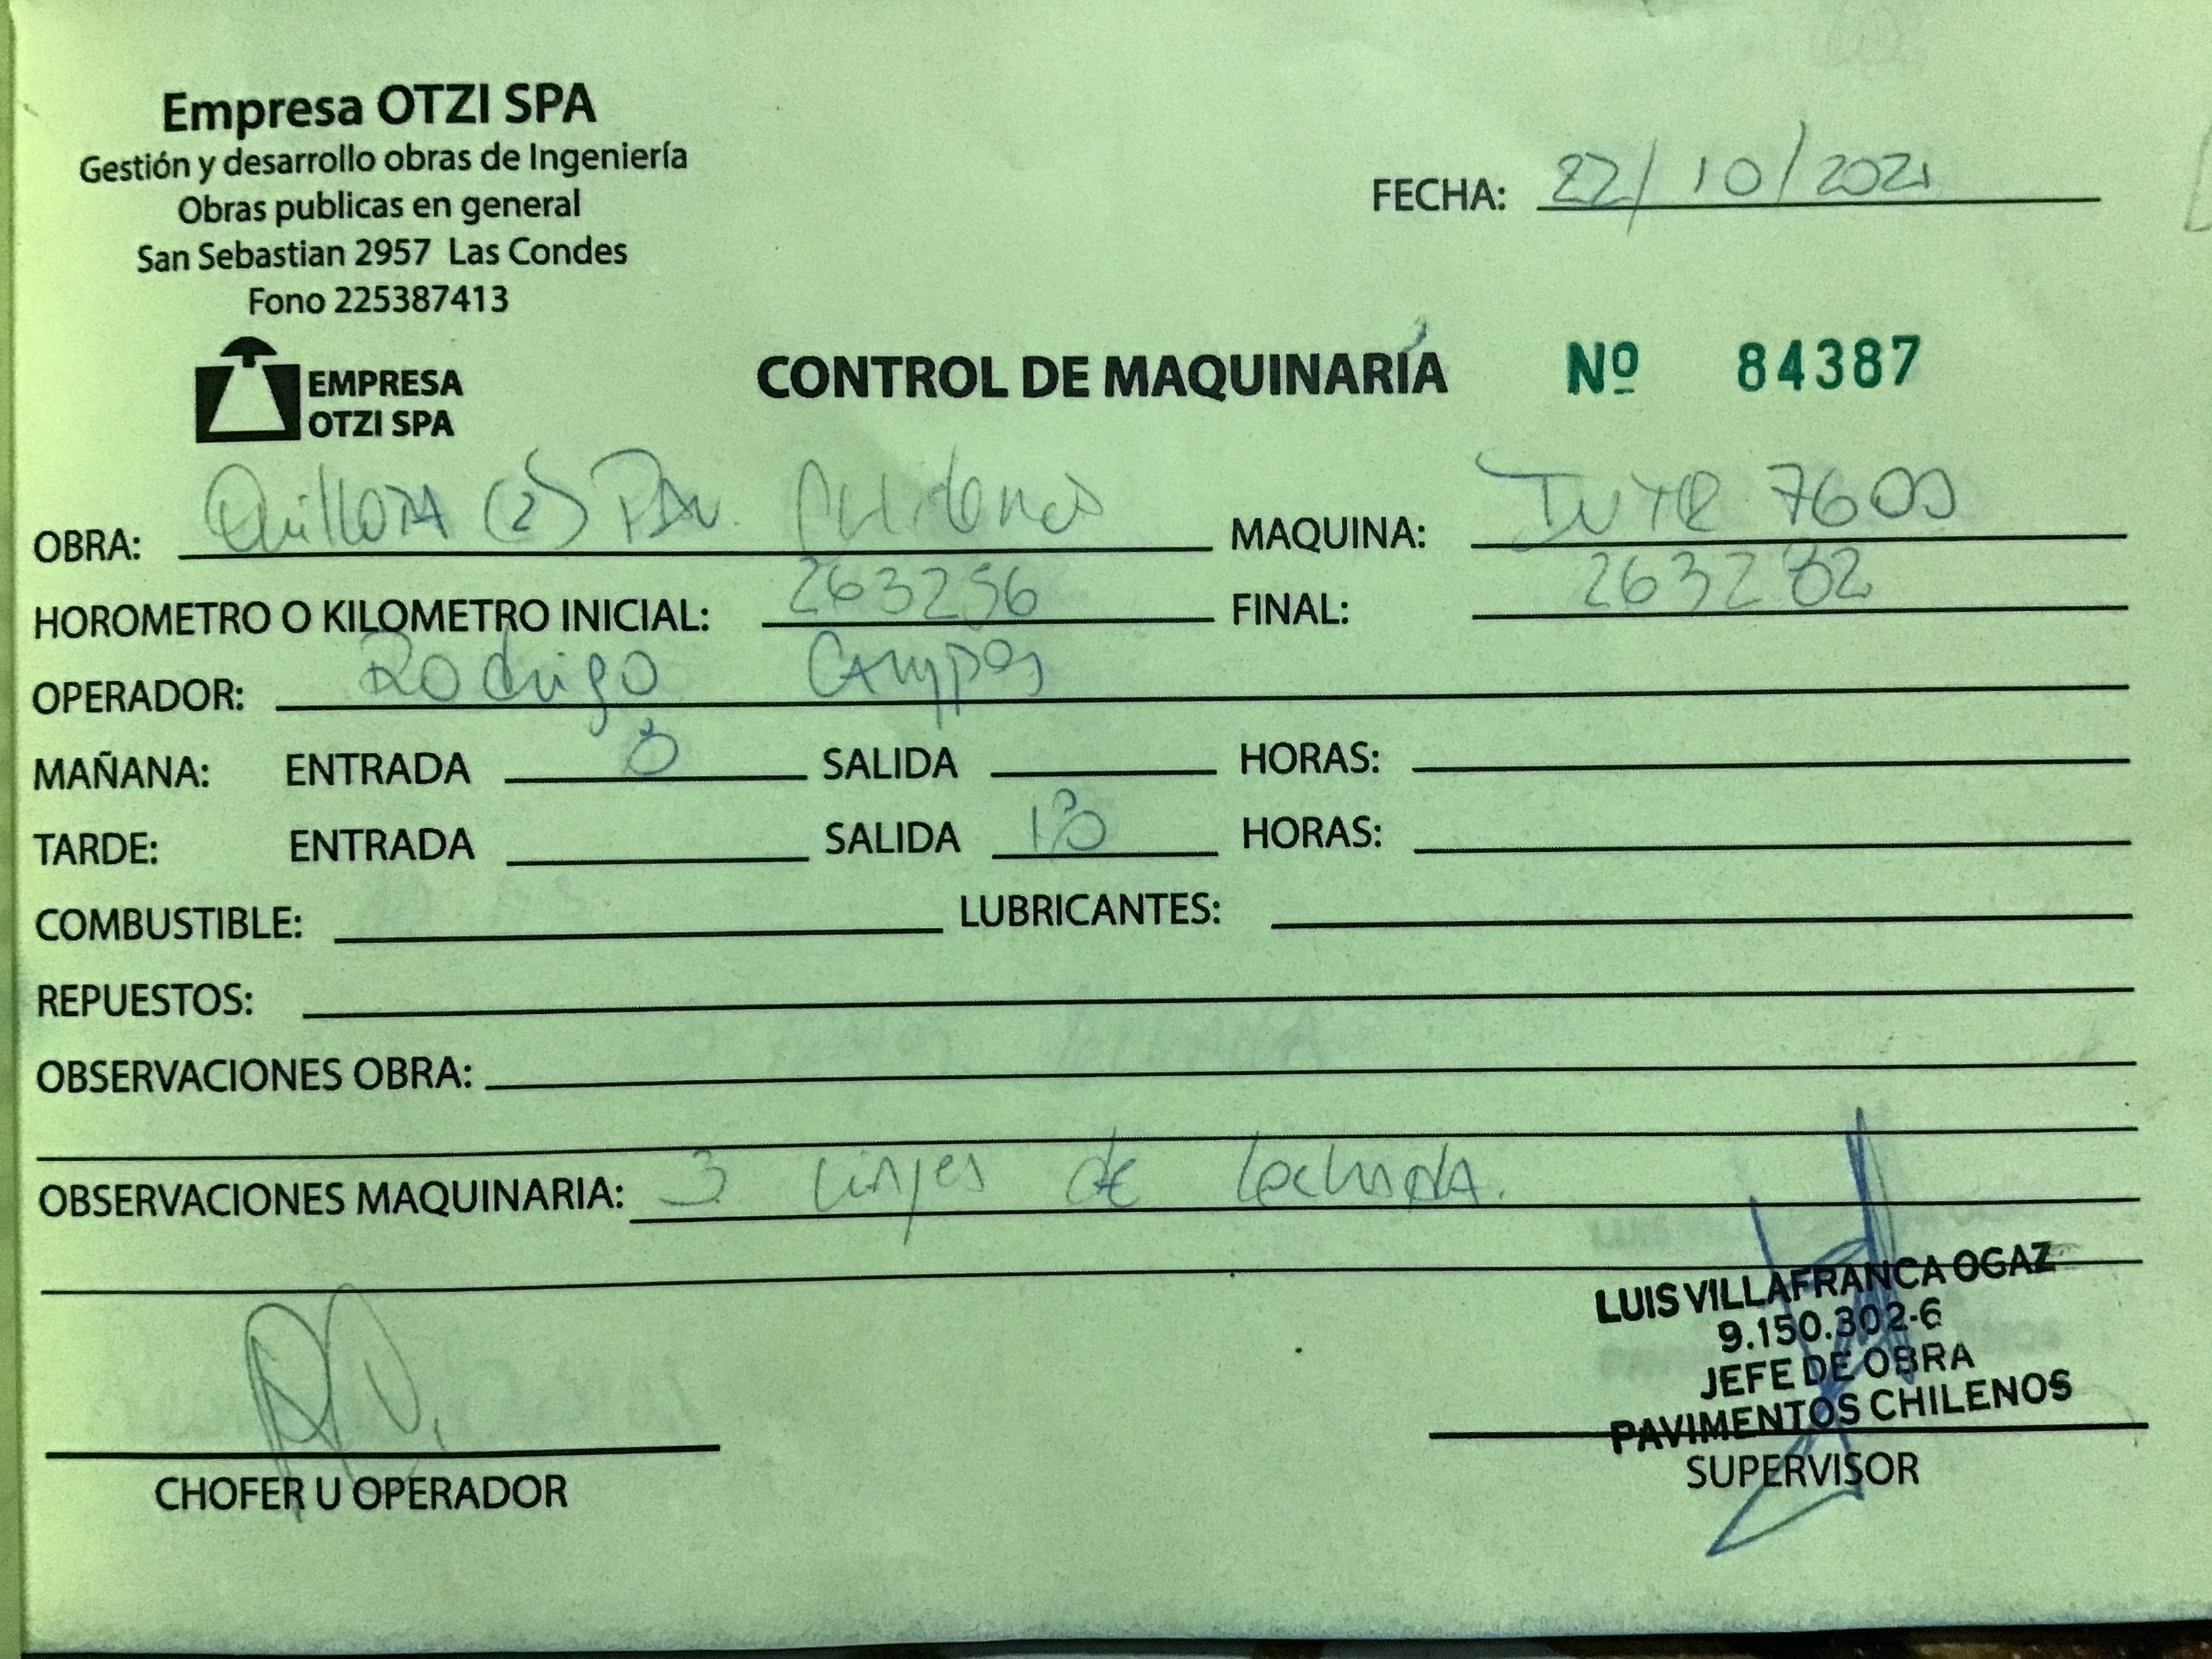 Empresa OTZI SPA
Gestión y desarrollo obras de Ingeniería
Obras publicas en general
San Sebastian 2957 Las Condes
Fono 225387413
FECHA: 22/10/2021
EMPRESA
OTZI SPA
CONTROL DE MAQUINARIA Nº 84387
OBRA: Quillota (2) Pav. Chilenos MAQUINA: 7600
HOROMETRO O KILOMETRO INICIAL: 263256 FINAL: 263282
OPERADOR: Rodrigo Campos
MAÑANA: ENTRADA 8 SALIDA HORAS:
TARDE: ENTRADA SALIDA 18 HORAS:
COMBUSTIBLE: LUBRICANTES:
REPUESTOS:
OBSERVACIONES OBRA:
OBSERVACIONES MAQUINARIA: 3 viajes de lechada.
LUIS VILLAFRANCA OGAZ
9.150.302-6
JEFE DE OBRA
PAVIMENTOS CHILENOS
CHOFER U OPERADOR
SUPERVISOR